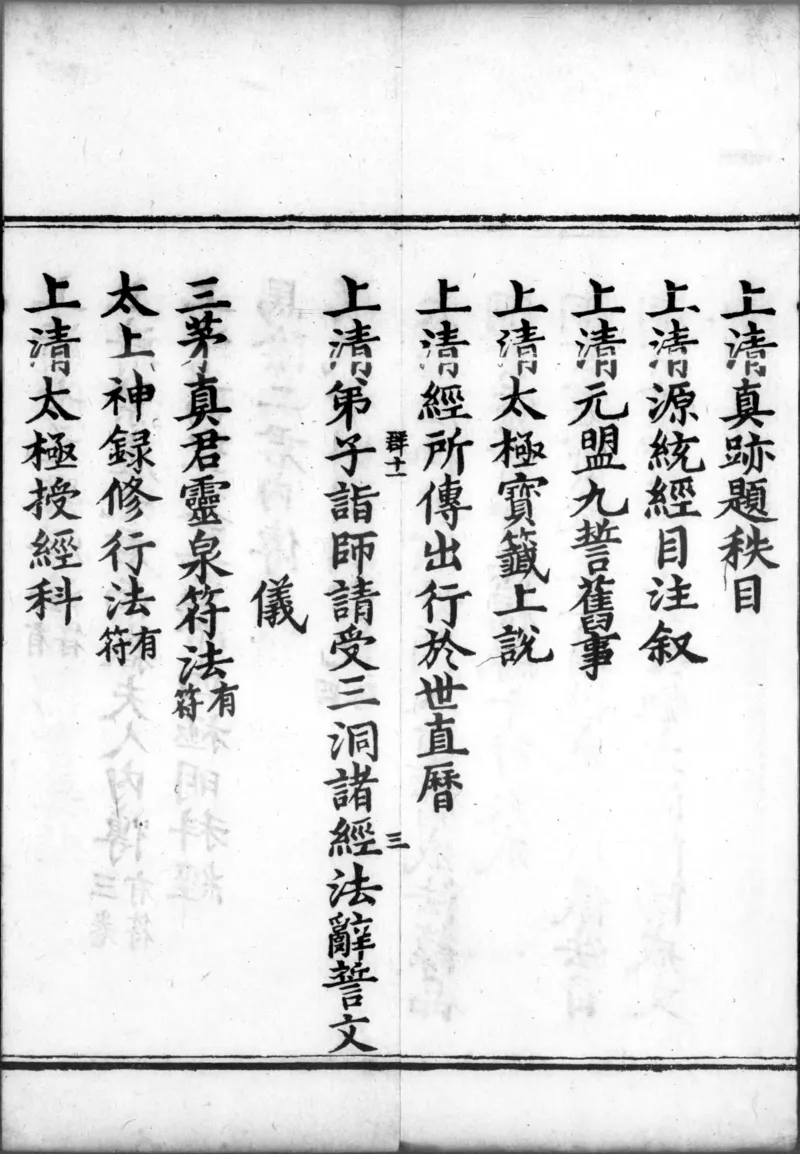 上清真跡題秩目
上清源統經目注叙
上清元盟九誓舊事
上清太極寳籖上說
上清經所傳出行於世直曆
群十一
三
上清弟子詣師請受三洞諸經法辭誓文
儀
三茅真君靈泉符法有符
太上神録修行法有符
上清太極授經科